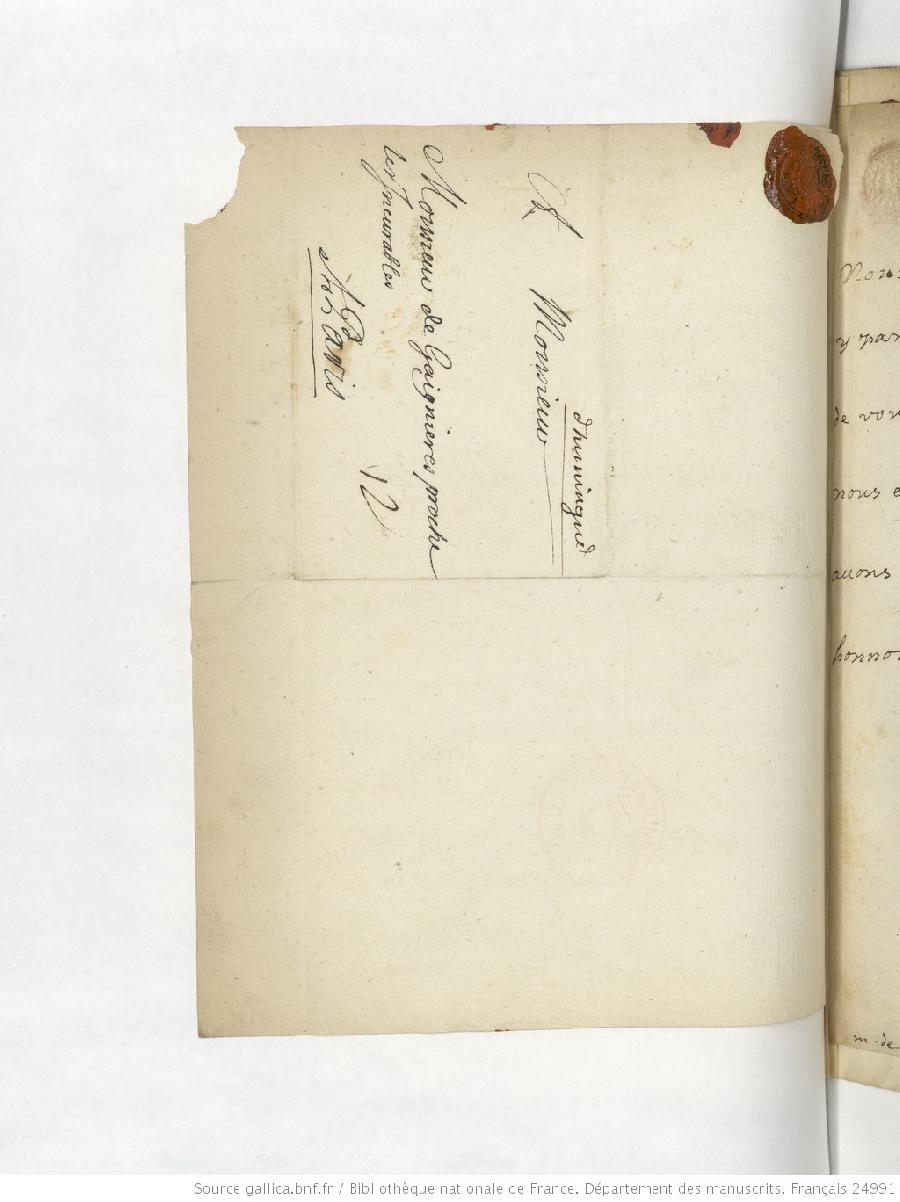 dhuningue
A Monsieur
Monsieur de Gaignieres proche
les Jncurables
A Paris
12
y par
nous e
auons
m. de
Source gallica.bnf.fr / Bibliothèque nationale de France. Département des manuscrits. Français 24991